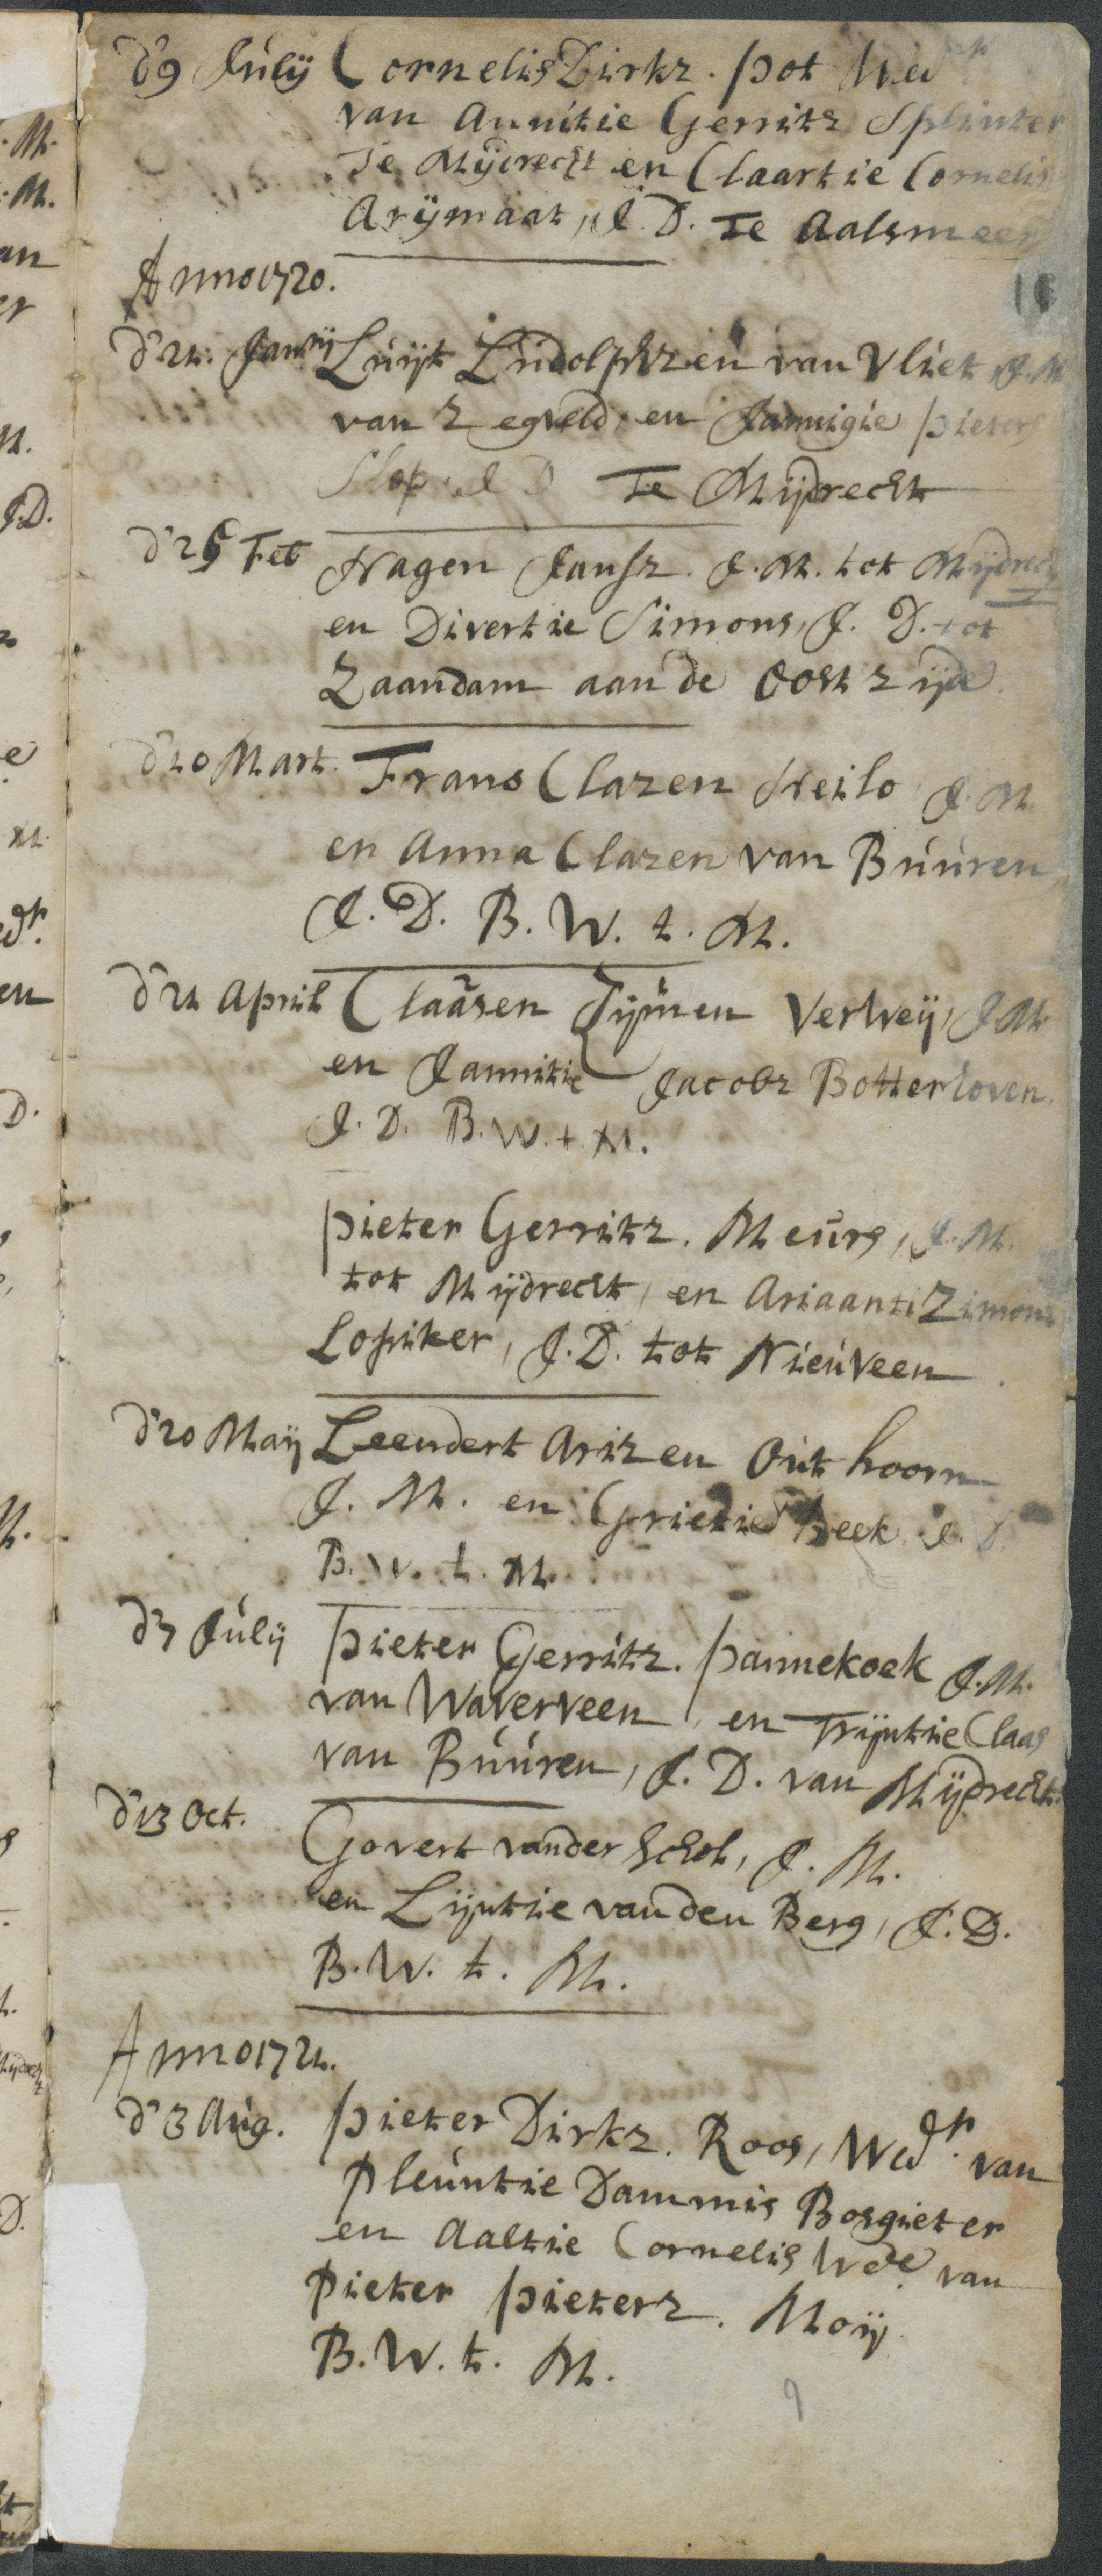 d'9 Julij Cornelis Dirkz. Pot Wedr
van Annitie Gerritz Splinter
Te Mijdrecht en Claartie Cornelis
Arijmaat, J. D. Te Aalsmeer
Anno 1720.
d'21. Janrij Luijt Ludolphzen van Vliet, J. M
van Zegveld, en Jannigie Pieters
Slop J D Te Mijdrecht
d'25 Feb Hagen Jansz. J. M. tot Mijdrecht
en Divertie Simons, J. D. tot
Zaandam aan de Oost zijde.
d'10 Mart. Frans Clazen Heilo J. M
en Anna Clazen van Buuren
J. D. B. W. t. M.
d'21 April Claasen Tijmen Verweij, J M
en Jannitie Jacobz Botterkoven.
J. D. B. W. t. M.
Pieter Gerritz. Meurs, J. M.
tot Mijdrecht, en Ariaanti Zimons
Lopiker, J. D. tot Nieuveen
d'20 Maij Leendert Arizen Outhoorn
J. M. en Grietie Beek J. D.
B. W. t. M.
d'7 Julij Pieter Gerritz. Pannekoek J. M.
van Waverveen, en Trijntie Claas
van Buuren, J. D. van Mijdrecht.
d'13 Oct. Govert vander Schol, J. M.
en Lijntie vanden Berg, J. D.
B. W. t. M.
Anno 1721.
d'3 Aug. Pieter Dirkz. Roos, Wedr. van
Pleuntie Dammis Bosgieter
en Aaltie Cornelis Wede van
Pieter Pieterz. Moij
B. W. t. M.
9